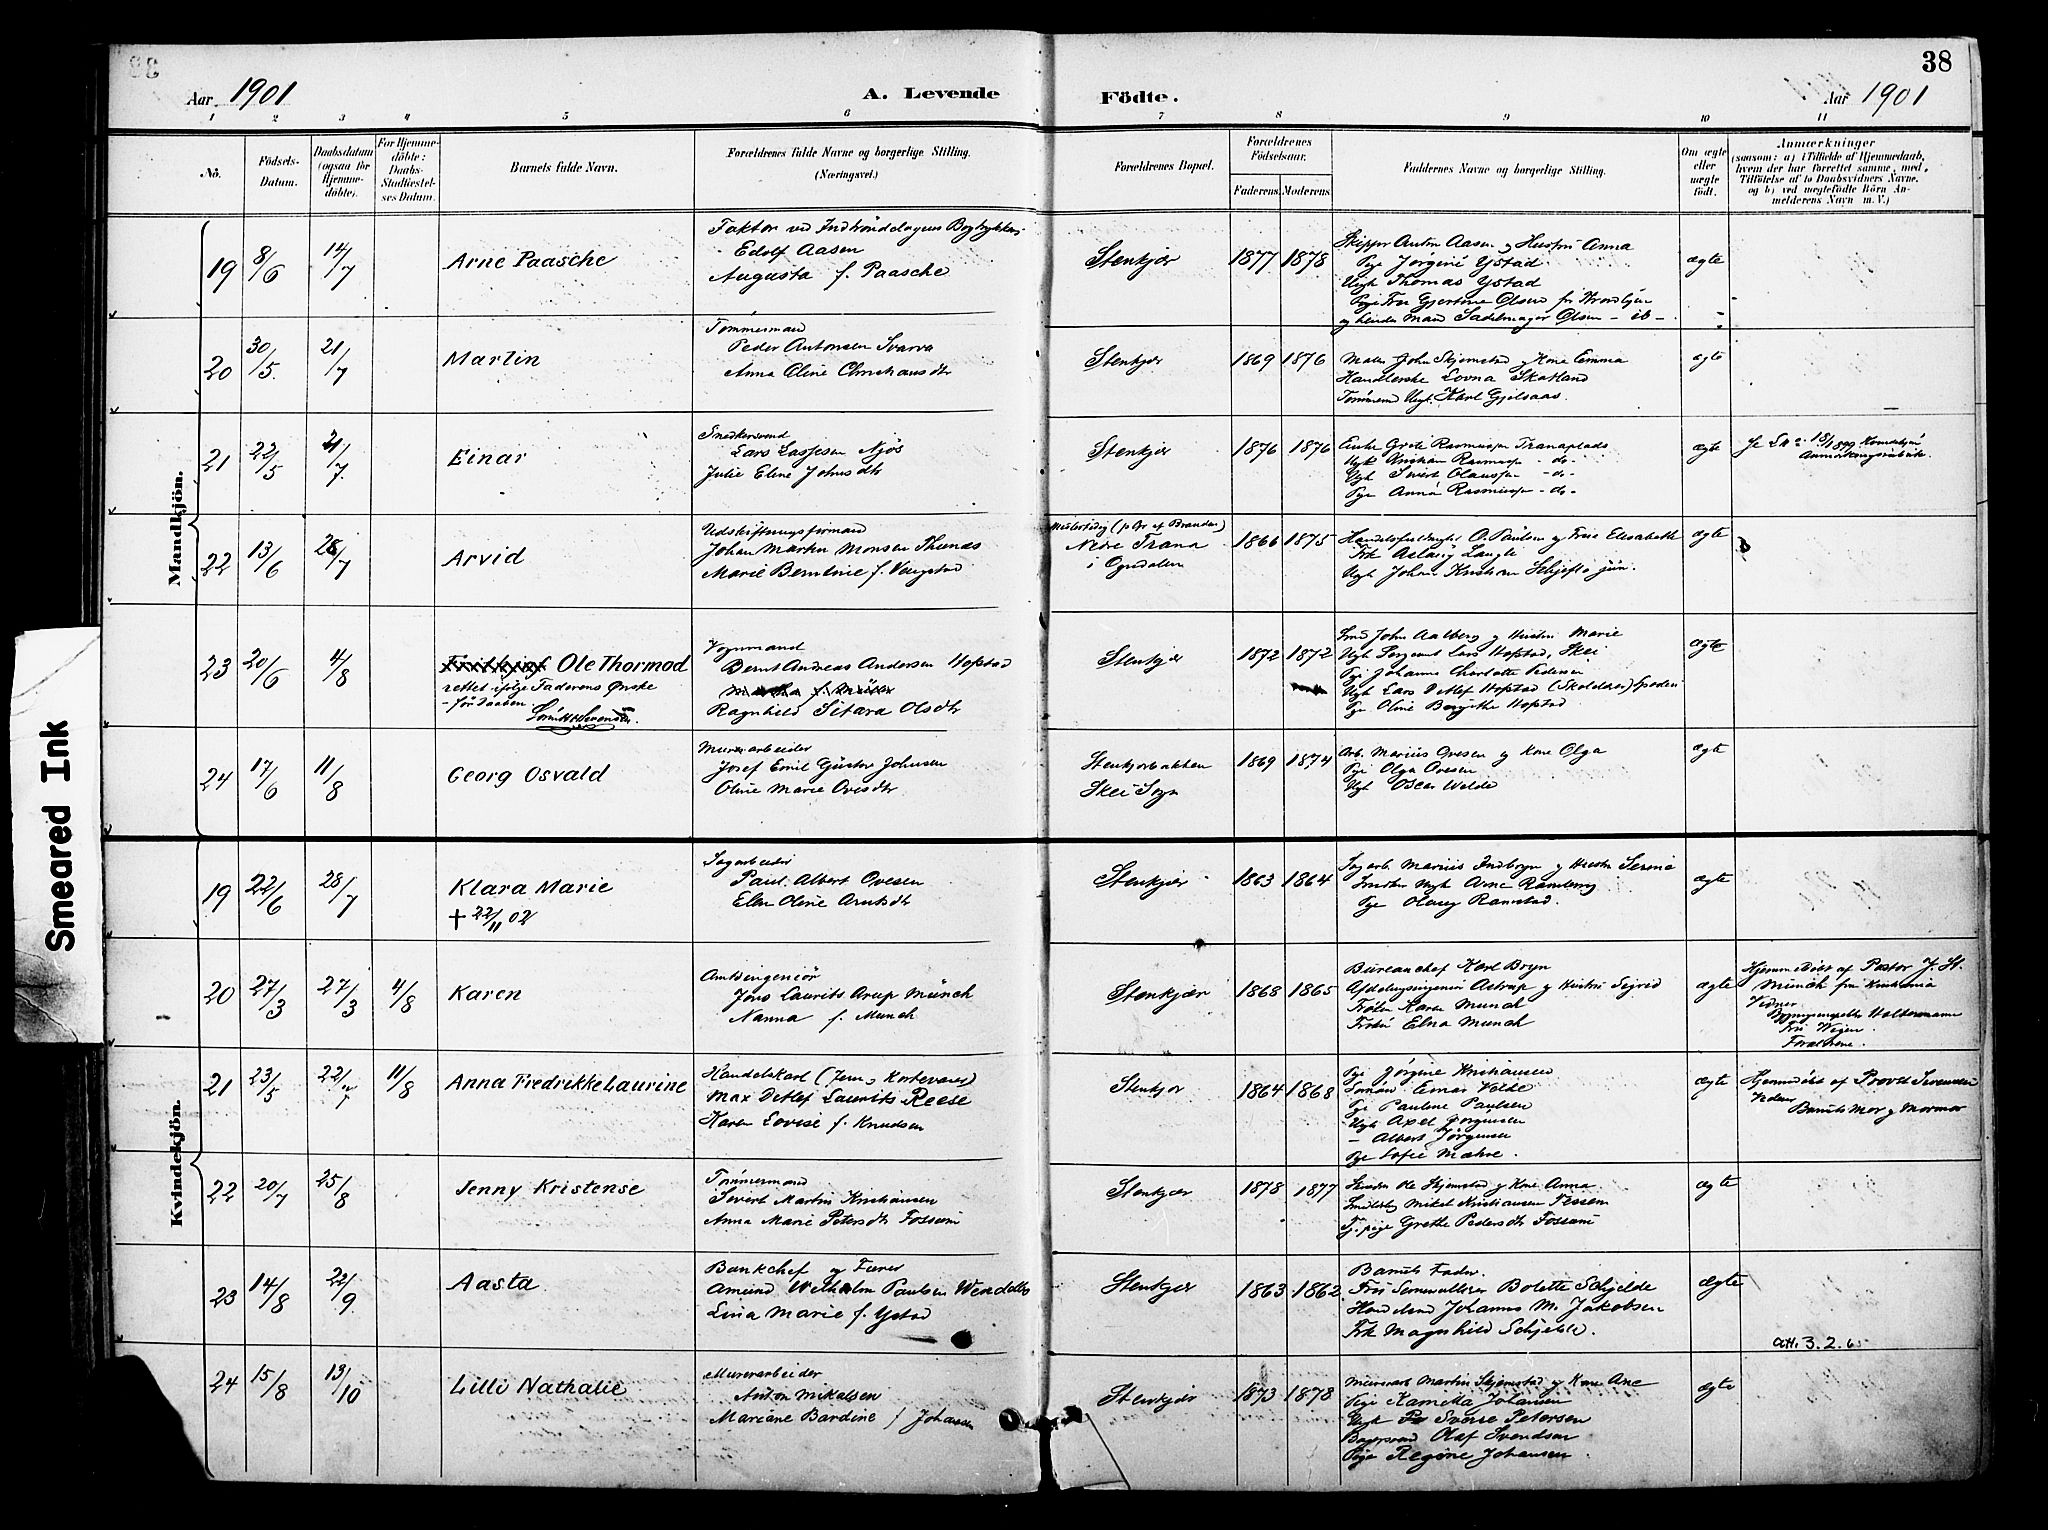 38
Aar 1901
A. Levende Födte.
Aar 1901
1 2 3 4 5 6 7 8 9 10 11
Nö.
Födsels-Datum.
Daabsdatum (ogsaa för Hjemmedöbte).
For Hjemmedöbte: Daabs-Stadfæstelses Datum.
Barnets fulde Navn.
Forældrenes fulde Navne og borgerlige Stilling. (Næringsvei.)
Forældrenes Bopæl.
Forældrenes Födselsaar.
Faderens. Moderens.
Faddernes Navne og borgerlige Stilling.
Om ægte eller uægte födt.
Anmærkninger
(saasom: a) i Tilfælde af Hjemmedaab, hvem der har forrettet samme, med Tilföielse af to Daabsvidners Navne, og b) ved uægtefödte Börn Anmelderens Navn m. V.)
Mandkjön.
19 8/6 14/7 Arne Paasche
Faktor ved Indtröndelagens Bogtrykkeri
Edolf Aasen
Augusta f. Paasche
Stenkjær 1877 1878
Skipper Anton Aasen og Hustru Anna
Pige Jørgine Ystad
Ungk Thomas Ystad
ægte
20 30/5. 21/7 Martin
Tømmermand
Peder Antonsen Svarva
Anna Oline Christiansdtr
Stenkjær 1869 1876
Maler John Skjemstad og Kone Emma
Handlerske Lovna Skatland
Ungk. Karl Gjelsaas.
ægte
21 22/5 21/7. Einar
Snedkersvend
Lars Lassesen Njøs
Julie Eline Johnsdtr
Stenkjær 1876 1876
Enke Grete Rasmussen Tranaplads
Ungk Kristian Rasmussen - do -
Ungk Sivert Olaussen - do -
Pige Anna Rasmussen - do -
ægte
22 13/6 28/7 Arvid
Udskiftningsformand
Johan Martin Monsen Thunæs
Marie Berntine f. Vaugstad
Midlertidig (p Gr af Branden)
Nedre Trana
i Ogndalen
1866 1875
O. Paulsen og Frue Elisabeth
Frk Aslaug Langli
Ungk Johan Kristian Schjefte jun.
ægte
23 20/6 4/8 Fridtjof Ole Thormod
rettet ifølge Faderens Ønske
- før Daaben
Vognmand
Bernt Andreas Andersen Hofstad
Ragnhild Sitara Olsdtr
Stenkjær 1872 1872
Smed John Aalberg og Hustru Marie
Ungk Sergeant Lars Hofstad, Skei
Pige Johanna Charlotte Pedersen
Ungk Lars Detlef Hofstad
Pige Oline Bergitte Hofstad
ægte
24 17/6 11/8 Georg Osvald
Murerarbeider
Josef Emil Gustav Johnsen
Oline Marie Ovesdtr
Stenkjærbakken
Skei Sogn
1869 1874
Arb. Marius Ovesen og Kone Olga
Pige Olga Ovesen
Ungk Oscar Welde
ægte
Kvindekjön.
19 22/6 28/7 Klara Marie
+ 22/11 02
Sagarbeider
Paul Albert Ovesen
Ellen Oline Arntsdtr
Stenkjær 1863 1864
Sagarb. Marius Indbryn og Hustru Serine
Ungk Arne Ramberg
Pige Olaug Ramstad.
ægte
20 27/3 27/3 4/8 Karen
Amtsingeniør
Jens Laurits Arup Münch
Nanna f. Munch
Stenkjær 1868 1865
Bureauchef Karl Bryn
Afdelingsingeniør Astrup og Hustru Sigrid
Frøken Karen Munch
Frøken Elna Munch
ægte
Hjemmedøbt af Pastor J. St.
Munch fra Kristiania
Vidner
Forældrene.
21 23/5 22/7 11/8 Anna Fredrikke Laurine
Handelskarl (Jern- Kortevarer)
Max Detlef Laurits Reese
Karen Lovise f. Knudsen
Stenkjær 1864 1868
Pige Jørgine Kristiansen
Einar Welde
Pige Pauline Paulsen
Ungk Axel Jørgensen
- Albert Jørgensen
Pige Sofie Mæhre.
ægte
Hjemmedøbt af Provst Sørensen
Vidner
Barnets Mor og Mormor
22 20/7 25/8 Jenny Kristense
Tømmermand
Sivert Martin Kristiansen
Anna Marie Petersdtr Fossum
Stenkjær 1878 1877
Ole Skjemstad og Kone Anna.
Mikal Kristiansen Fossem
Tj. pige Grethe Pedersdtr Fossum
ægte
23 14/8 22/9. Aasta
Bankchef og
Amund Welhelm Paulsen Wendelbo
Lina Marie f. Ystad
Stenkjær 1863 1862
Barnets Fader.
Bolette Schjelde
Johannes M. Jakobsen
Frk Magnhild Schjelde.
ægte
att. 3.2.6
24 15/8 13/10 Lilli Nathalie
Murerarbeider
Anton Mikalsen
Mariane Bardine f Johansen
Stenkjær 1873 1878
Murerarb Martin Skjemstad og Kone Ane
Pige Kamilla Johansen
Ungk Sverre Petersen
Olaf Svendsen
Pige Regine Johansen
ægte
Smeared Ink